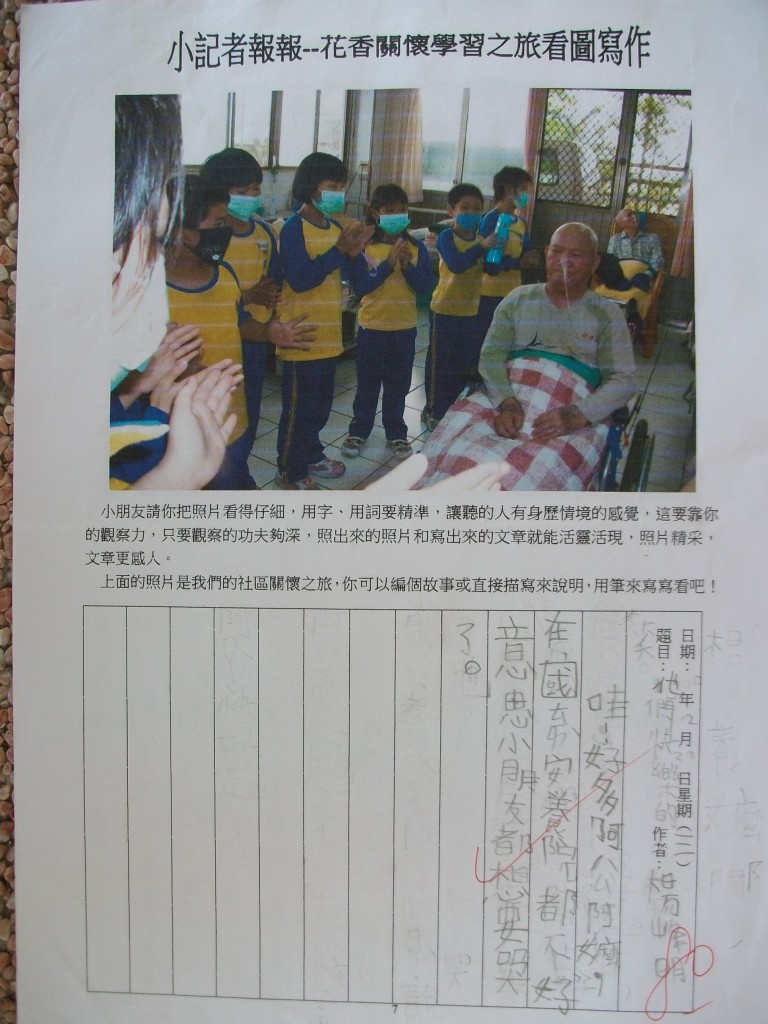 小記者報報--花香關懷學習之旅看圖寫作
小朋友請你把照片看得仔細，用字、用詞要精準，讓聽的人有身歷情境的感覺，這要靠你
的觀察力，只要觀察的功夫夠深，照出來的照片和寫出來的文章就能活靈活現，照片精采，
文章更感人。
上面的照片是我們的社區關懷之旅，你可以編個故事或直接描寫來說明，用筆來寫寫看吧！
日期： 年 2 月 23 日星期(二)
題目：他們快樂的 作者：楊 明
哇！好多阿公阿嬤，
在國 安養院都不好
意思小朋友都想要哭
了。
80
7